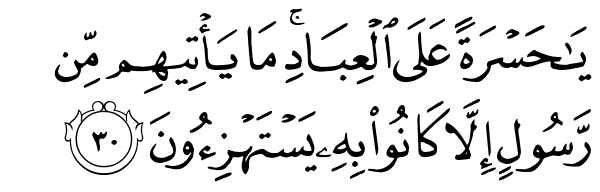 يَـٰحَسْرَةً عَلَى ٱلْعِبَادِ ۚ مَا يَأْتِيهِم مِّن
رَّسُولٍ إِلَّا كَانُوا۟ بِهِۦ يَسْتَهْزِءُونَ ٣٠